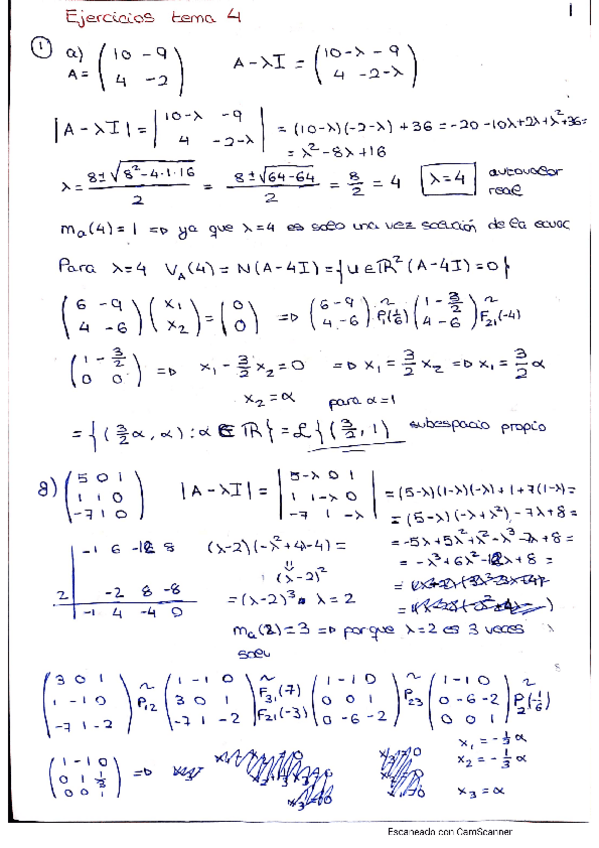 Ejercicios tema 4
1
① a) A = (10 -9; 4 -2)   A-λI = (10-λ -9; 4 -2-λ)
|A-λI| = |10-λ -9; 4 -2-λ| = (10-λ)(-2-λ) + 36 = -20-10λ+2λ+λ²+36 =
= λ²-8λ+16
λ = (8±√(8²-4·1·16))/2 = (8±√(64-64))/2 = 8/2 = 4   λ=4   autovalor real
ma(4) = 1 => ya que λ=4 es solo una vez solución de la ecuac
Para λ=4 V_A(4) = N(A-4I) = {u∈ℝ² (A-4I)=0}
(6 -9; 4 -6)(x₁; x₂) = (0; 0) => (6 -9; 4 -6) ~ P₁(1/6) (1 -3/2; 4 -6) ~ F₂₁(-4)
(1 -3/2; 0 0) => x₁ - 3/2 x₂ = 0 => x₁ = 3/2 x₂ => x₁ = 3/2 α
x₂ = α   para α=1
= {(3/2 α, α) : α ∈ ℝ} = ℒ{(3/2, 1)   subespacio propio
g) (5 0 1; 1 1 0; -7 1 0)   |A-λI| = |5-λ 0 1; 1 1-λ 0; -7 1 -λ| = (5-λ)(1-λ)(-λ)+1+7(1-λ) =
= (5-λ)(-λ+λ²) -7λ+8 =
= -5λ+5λ²+λ²-λ³-7λ+8 =
= -λ³+6λ²-12λ+8 =
-1 6 -12 8   (λ-2)(-λ²+4λ-4) =
(λ-2)²
2   -2 8 -8
-1 4 -4 0   = (λ-2)³ λ=2
ma(2) = 3 => porque λ=2 es 3 veces
soluc
(3 0 1; 1 -1 0; -7 1 -2) ~ P₁₂ (1 -1 0; 3 0 1; -7 1 -2) ~ F₃₁(7) F₂₁(-3) (1 -1 0; 0 0 1; 0 -6 -2) ~ P₂₃ (1 -1 0; 0 -6 -2; 0 0 1) ~ P₂(1/6)
(1 -1 0; 0 1 1/3; 0 0 1) =>
x₁ = -1/3 α
x₂ = -1/3 α
x₃ = α
Escaneado con CamScanner